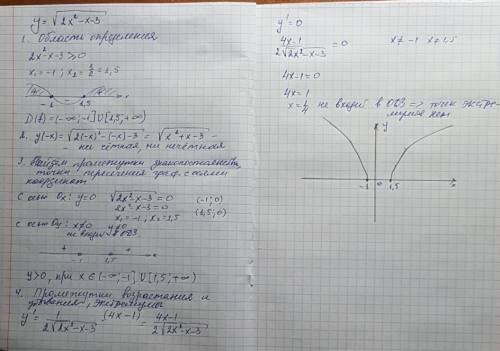 y = √(2x²-x-3)
1. Область определения
2x²-x-3 ≥ 0
x₁ = -1 ; x₂ = 3/2 = 1,5
-1 1,5 x
D(f) = (-∞; -1] U [1,5; +∞)
2. y(-x) = √(2(-x)²-(-x)-3) = √(x²+x-3) -
- ни чётная, ни нечётная
3. Найдем промежутки знакопостоянства,
точки пересечения граф. с осями
координат
С осью Ox: y=0 √(2x²-x-3) = 0 (-1; 0)
2x²-x-3=0 (1,5; 0)
x₁ = -1, x₂ = 1,5
С осью Oy: x≠0 y≠0
не входит в ОДЗ
+ + -1 1,5 x
y>0, при x ∈ (-∞; -1] U [1,5; +∞)
4. Промежутки возрастания и
убывания, экстремумы
y' = 1/(2√(2x²-x-3)) · (4x-1) = (4x-1)/(2√(2x²-x-3))
y' = 0
(4x-1)/(2√(2x²-x-3)) = 0 x ≠ -1 x ≠ 1,5
4x-1=0
4x=1
x = 1/4 не входит в ОДЗ => точек экстре-
мумов нет
y
-1 0 1,5 x